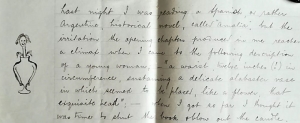 Last night I was reading a Spanish or rather
Argentine, historical novel, called "Amalia", but the
irritation the opening chapter produced on me reached
a climax when I came to the following description
of a young woman: "a waist twelve inches (!) in
circumference, sustaining a delicate alabaster vase
in which seemed to be placed, like a flower, that
exquisite head", — when I got so far I thought it
was time to shut the book & blow out the candle.